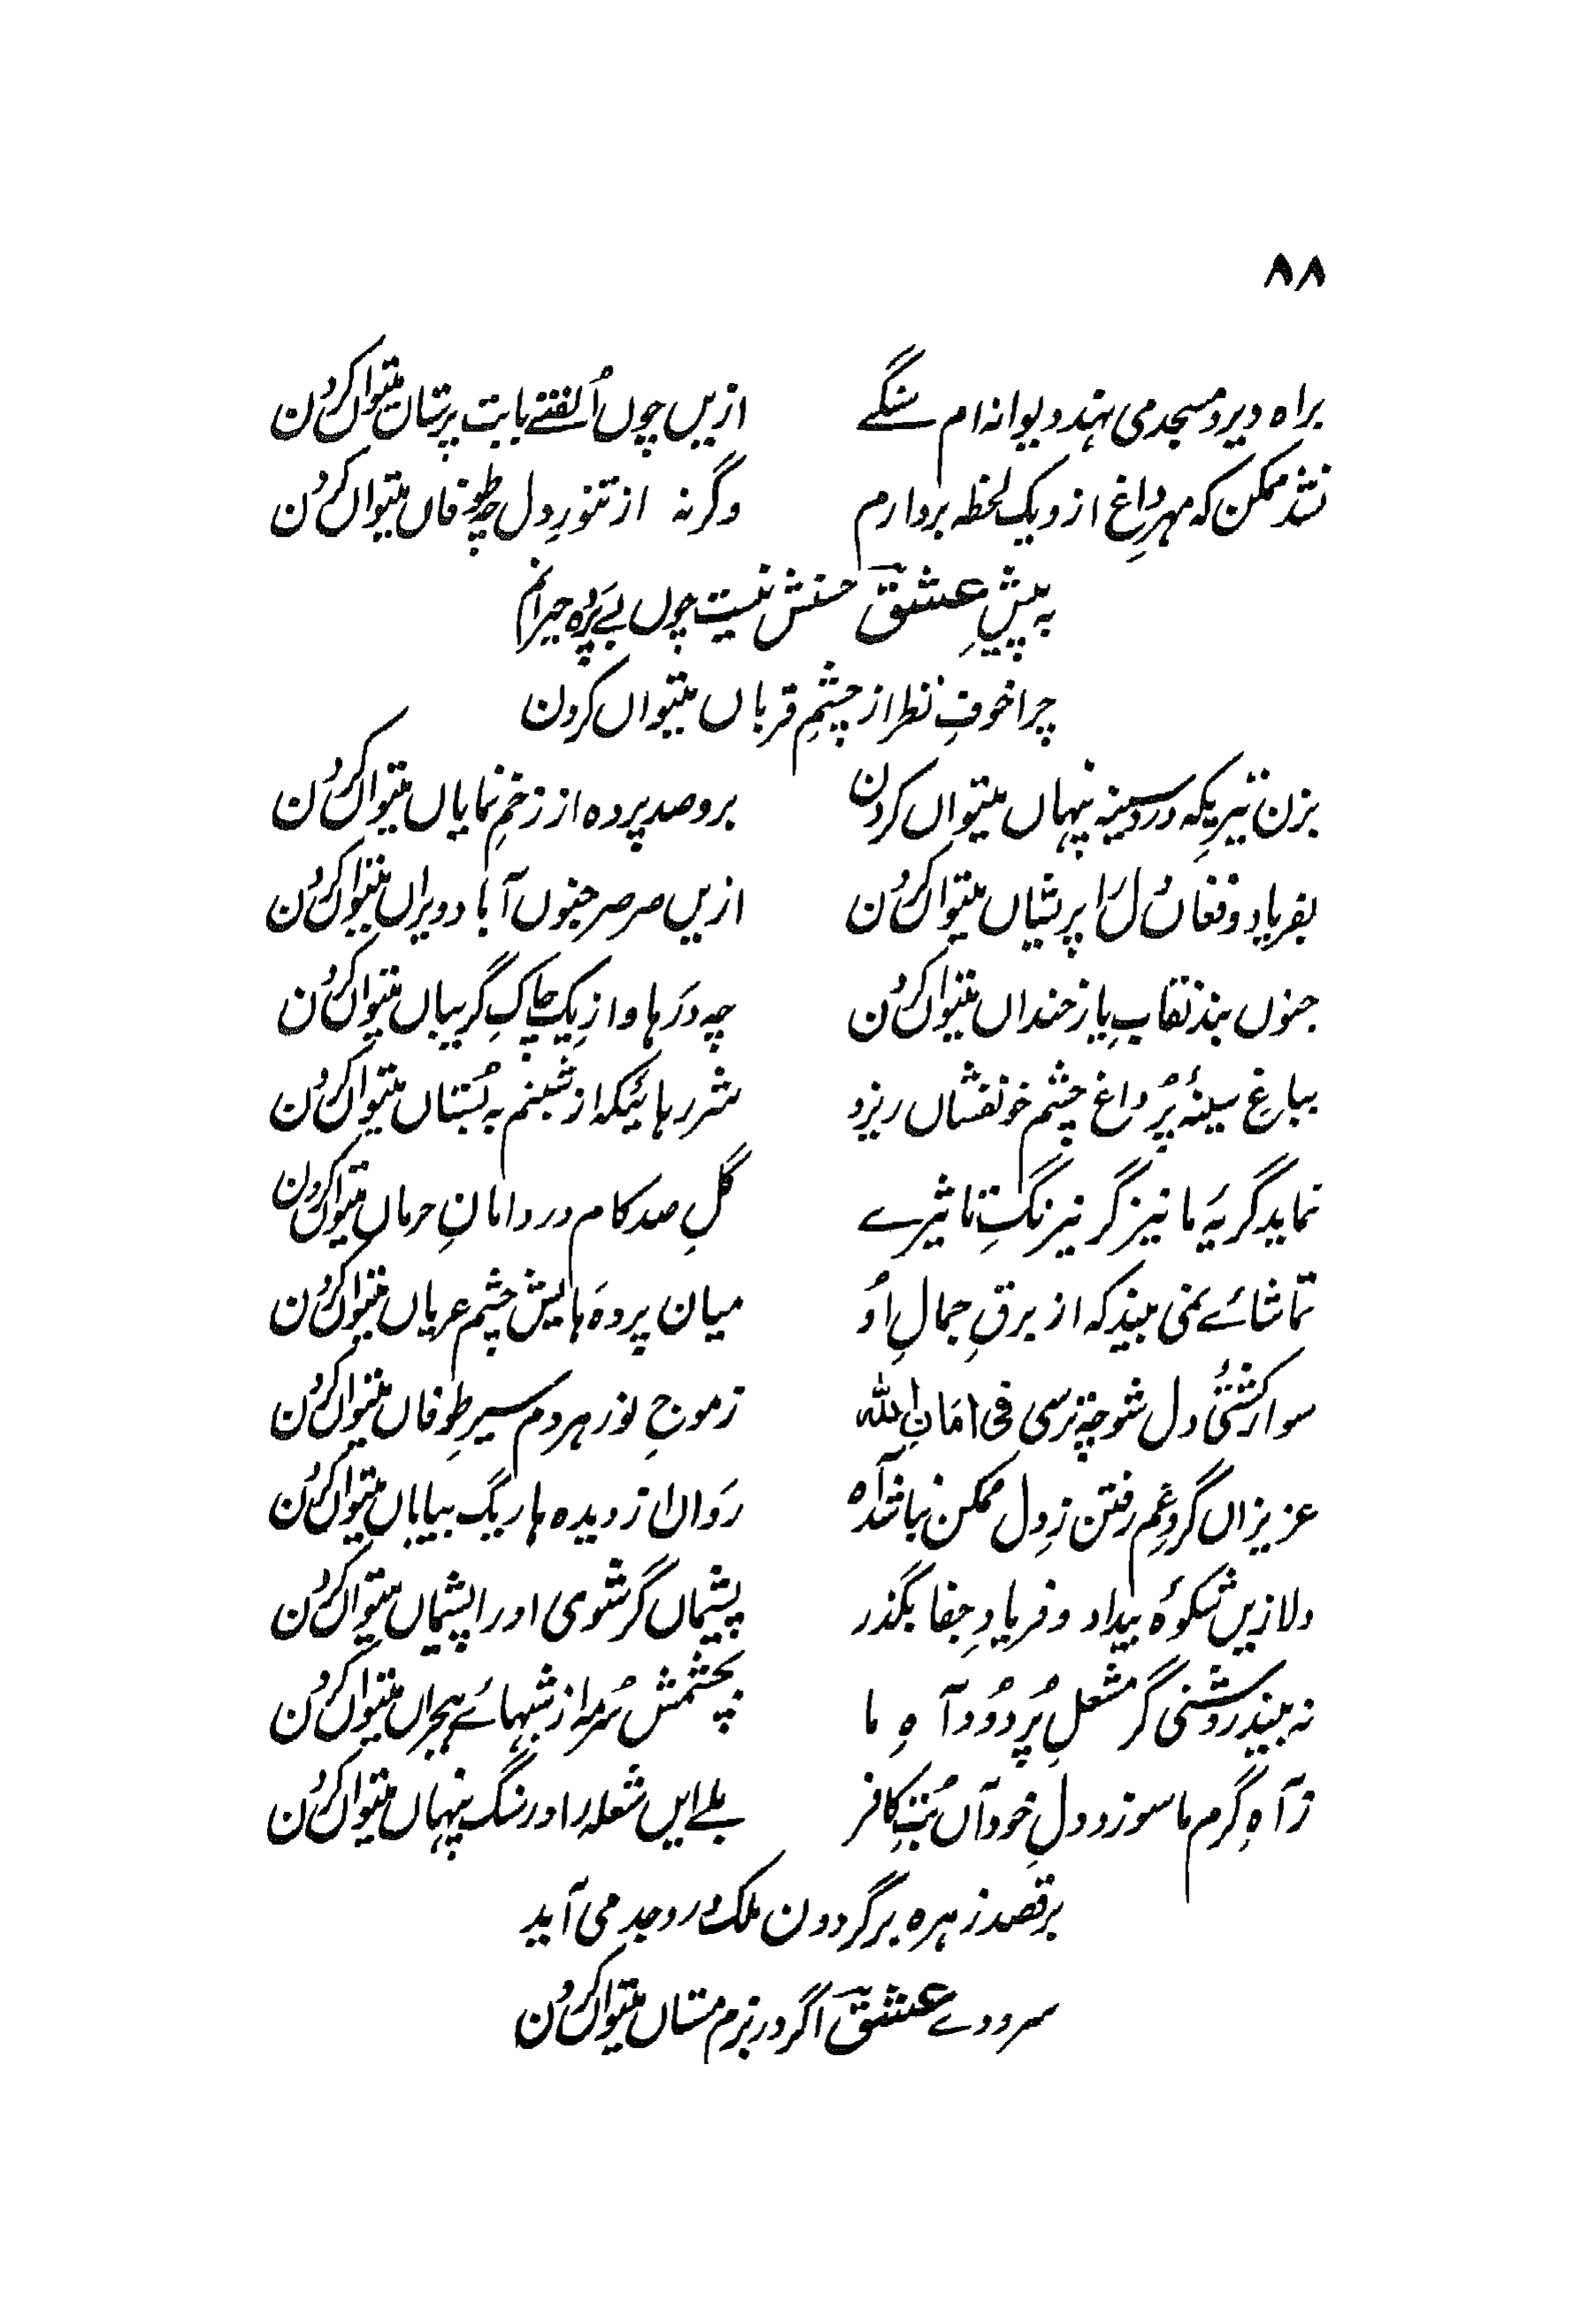 ۸۸
براہ دیر و مسجد می نہد دیوانہ ام سنگے ازیں چوں اُلفتے با بت پرستاں میتواں کردن
نشد ممکن کہ مہرِ داغ ازو یک لحظہ بردارم وگرنہ از تنورِ دل چہ طوفاں میتواں کردن
بہ پیشِ عشقؔ حسنش نیست چوں بے پردہ حیرانم
چرا خوفِ نظر از چشمِ قرباں میتواں کردن
بزن تیریکہ در سینہ پنہاں میتواں کردن برو صد پردہ از زخمِ نمایاں میتواں کردن
بفریاد و فغاں دل را پریشاں میتواں کردن ازیں صرصر جنوں آباد ویراں میتواں کردن
جنوں بند نقابِ یار خنداں میتواں کردن چہ دَرہا وا ز یک چاکِ گریباں میتواں کردن
بباغِ سینۂ پُر داغ چشم خونفشاں ریزد شررہائیکہ از شبنم بہ بُستاں میتواں کردن
نماید گریۂ ما نیز گر نیرنگِ تاثیرے گلِ صد کام در دامانِ حرماں میتواں کردن
تماشائے نمی بیند کہ از برقِ جمالِ اُو میان پردہ ہایش چشم عریاں میتواں کردن
سوار کشتئ دل شو چہ ترسی فی امَانِ اللہ ز موجِ نوز ہردم سیرِ طوفاں میتواں کردن
عزیزاں گردِ غم رفتن زِ دل ممکن نباشد آہ رَواں از دیدہ ہا ریگ بیاباں میتواں کردن
دلا زیں شکوۂ بیداد و فریادِ جفا بگذر پشیماں گر شوی او را پشیماں میتواں کردن
نہ بیند روشنی گر مشعلِ پُر دُودِ آہِ ما بچشمش سُرمہ از شبہائے ہجراں میتواں کردن
ز آہِ گرم ما سوزد دلِ خود آں بُتِ کافر بلے ایں شعلہ را در سنگ پنہاں میتواں کردن
برقصد زہرہ بر گردون ملک در وجد می آید
سرودے عشقؔ اگر در بزم مستاں میتواں کردن